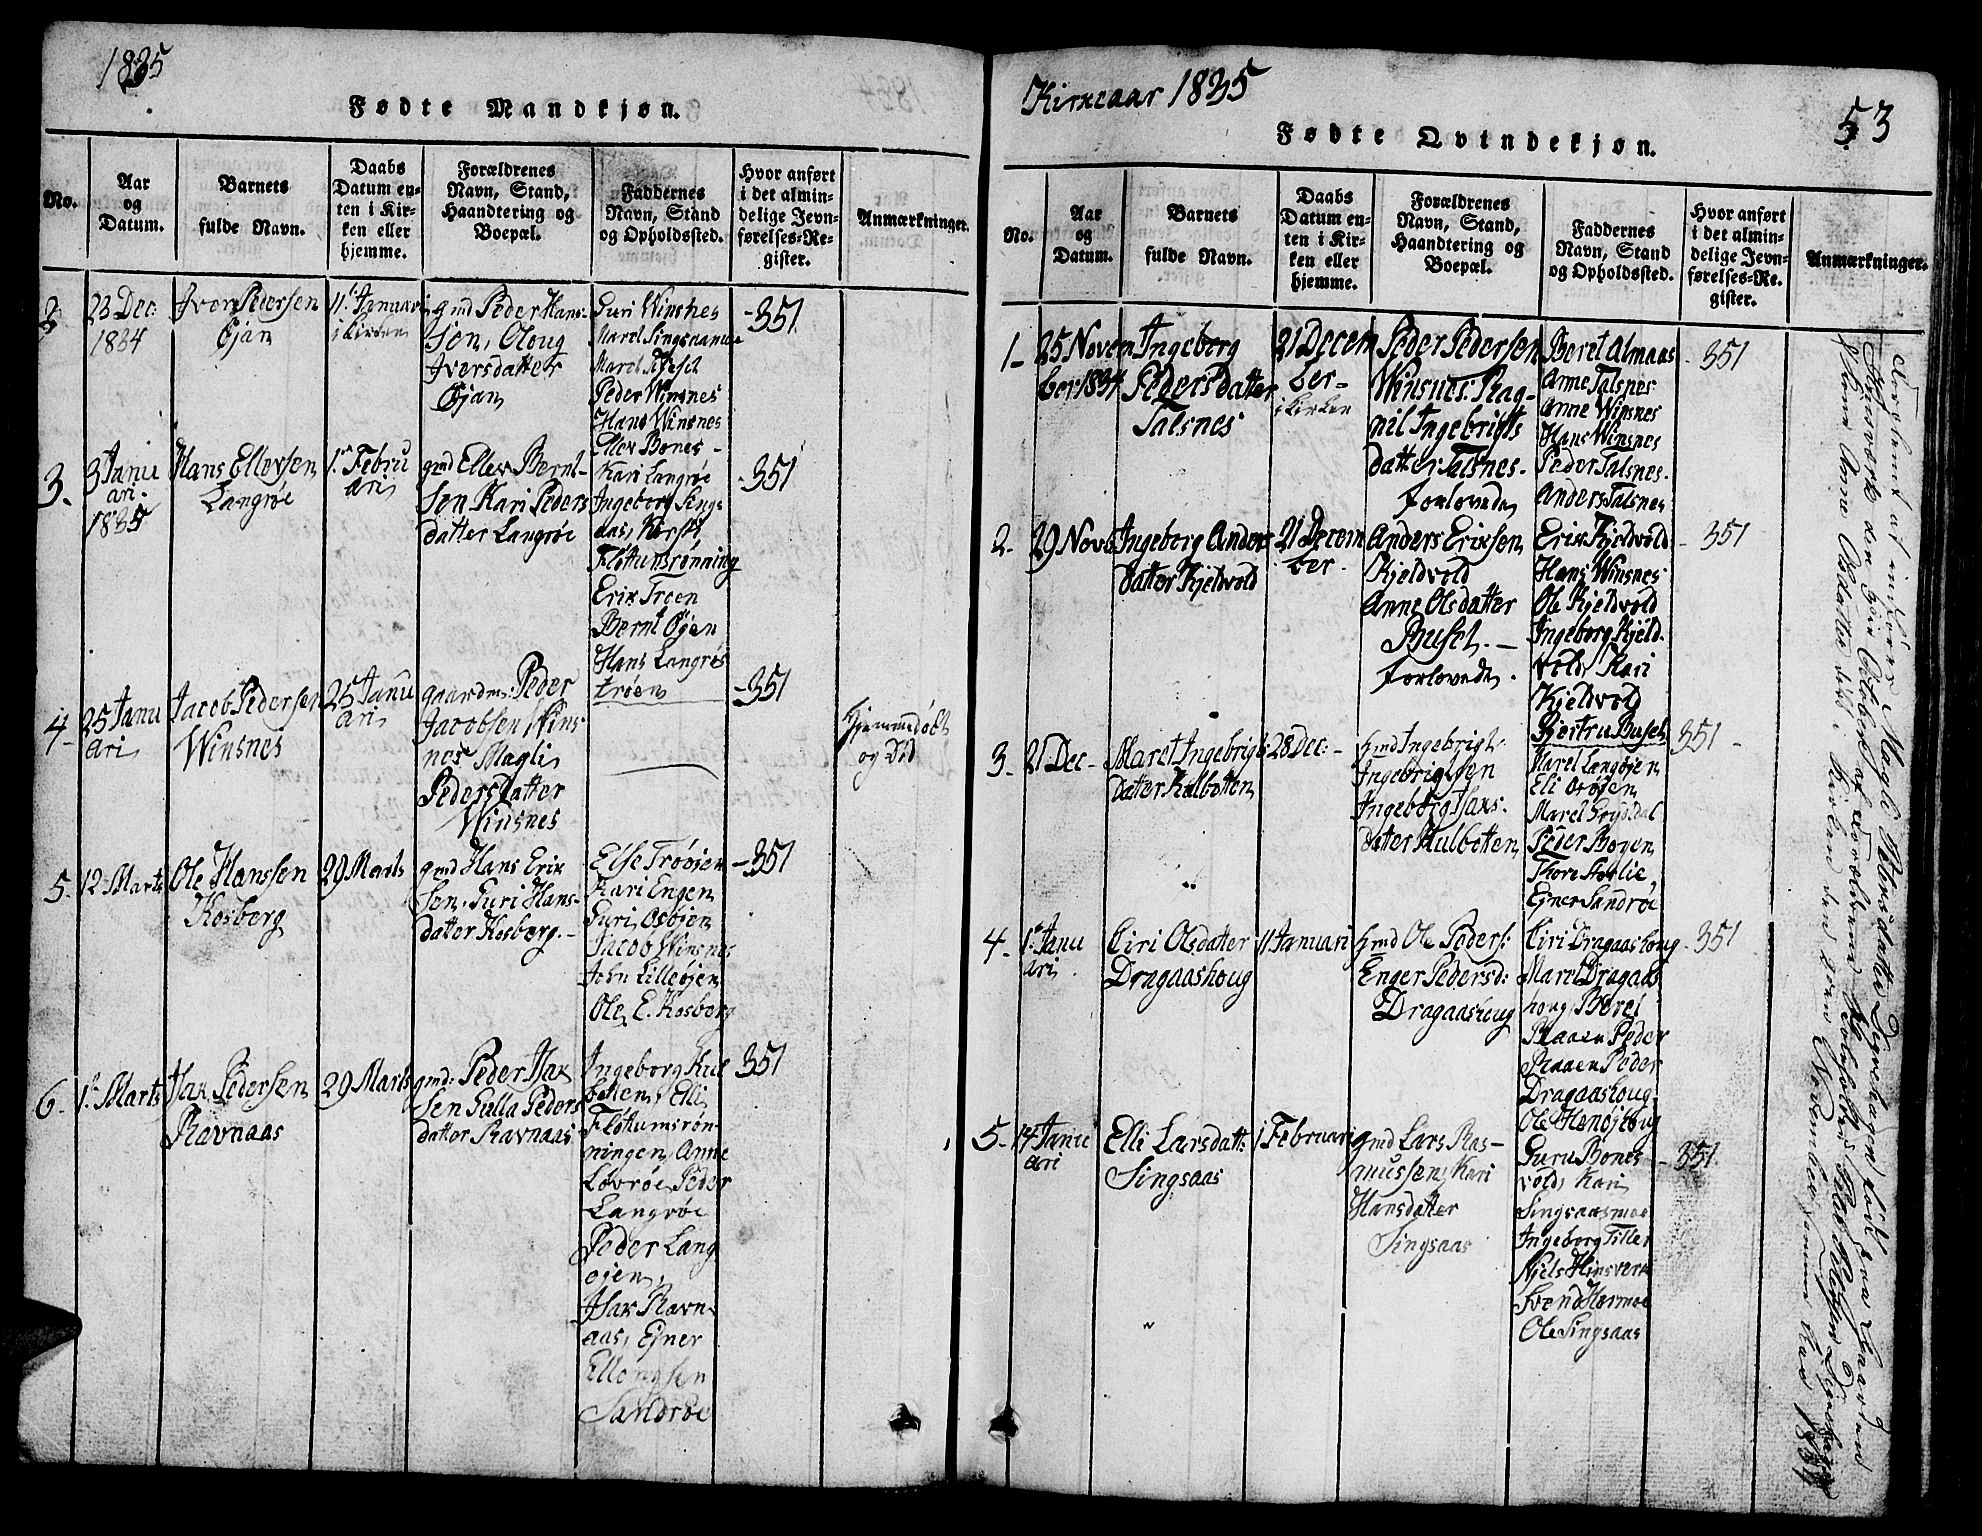 1835
Fødte Mandkjøn.
No.
Aar
og
Datum.
Barnets
fulde Navn.
Daabs
Datum en-
ten i Kir-
ken eller
hjemme.
Forældrenes
Navn, Stand,
Haandtering og
Boepæl.
Faddernes
Navn, Stand
og Opholdssted.
Hvor anført
i det almin-
delige Jevn-
førelses-Re-
gister.
Anmærkninger.
2
23 Dec:
1834
Iver Pedersen
Øian
11te Januari
i Kirken
gmd Peder Hans-
sen, Oloug
Iversdatter
Øjan
Guri Winsnes
Maret Singsaasmoe
Maret
Peder Winsnes
Hans Winsnes
Eller Bones
351
3.
3 Janu
ari.
1835
Hans Ellevsen
Langrøe
1te Febru
ari
gmd Ellev Bernt-
sen Kari Peders
datter Langrøe
Kari Langrøe
Ingeborg Sings
aas,
Fløttumsrønning
Erik Troen
Bernt Øjen
Hans Langrøs
trøen
351
4
25 Janu
ari
Jacob Pedersen
Winsnes
25 Janu
ari
gaardm: Peder
Jacobsen Wins
nes Magli
Pedersdatter
Winsnes
351
Hjemmedøbt
og Død
5.
12 Marts
Ole Hanssen
Kosberg
29 Marts
gmd Hans Erik
sen, Guri Hans-
datter Kosberg.
Else Trøøjen
Kari Engen
Guri Osøjen
Jacob Winsnes
John Lilleøjen
Ole E. Kosberg
351
6.
1te Marts
Isak Pedersen
Ravnaas
29 Marts
gmd: Peder Isak
sen Gulla Peders
datter Ravnaas
Ingeborg Kul
botten, Elli
Fløttumsrøn-
ningen, Anne
Løvrøe, Peder
Langrøe
Peder Lang
øjen,
Isak Ravn-
aas, Ejner
Ellongsen
Sandrøe
351
Kirkeaar 1835
53
Fødte Qvindekjøn.
No.
Aar
og
Datum.
Barnets
fulde Navn.
Daabs
Datum en-
ten i Kir-
ken eller
hjemme.
Forældrenes
Navn, Stand,
Haandtering og
Boepæl.
Faddernes
Navn, Stand
og Opholdssted.
Hvor anført
i det almin-
delige Jevn-
førelses-Re-
gister.
Anmærkninger.
1
25 Novem
ber 1834
Ingeborg
Pedersdatter
Talsnes
21 Decem
ber
i Kirken
Peder Pedersen
Winsnes. Rag-
nil Ingebrigts
datter Talsnes.
forlovede
Beret Almaas
Anne Talsnes
Anne Winsnes
Hans Winsnes
Peder Talsnes.
Anders Talsnes
351
2.
29 Novb
Ingeborg Anders
datter Kjeldvold
21 Decem
ber
Anders Eriksen
Kjeldvold
Anne Olsdatter
Buset.
forlovede.
Erik Kjeldvold
Hans Winsnes
Ole Kjeldvold
Ingeborg Kjeld-
vold, Kari
Kjeldvold
Bjertru Buset
351
3.
21 Dec
Maret Ingebrigts
datter Kulbotten
28 Dec:
hmd Ingebrigt
Ingebrigtsen
Ingeborg Isaks-
datter Kulbotten
Maret Langøjen
Eli Osøjen
Maret Grytdal
Peder Bogen
Thore Storlie
Ejner Sandrøe
351
4.
1te Janu
ari
Ciri Olsdatter
Dragaashoug
11 Januari
hmd Ole Peders:
Enger Pedersd:
Dragaashoug
Ciri Dragaashoug
Maret Dragaas
houg, Beret
Raaen Peder
Raaen Peder
Dragaashoug
351
5.
14 Janu
ari
Elli Larsdatt:
Singsaas
1 Februari
gmd Lars Ras-
mussen, Kari
Hansdatter
Singsaas
Ole
Guru Bones
vold, Kari
Singsaasmoe
Ingeborg Tiller
Njels Hinsverk
Svend Hermoe
Ole Singsaas
351